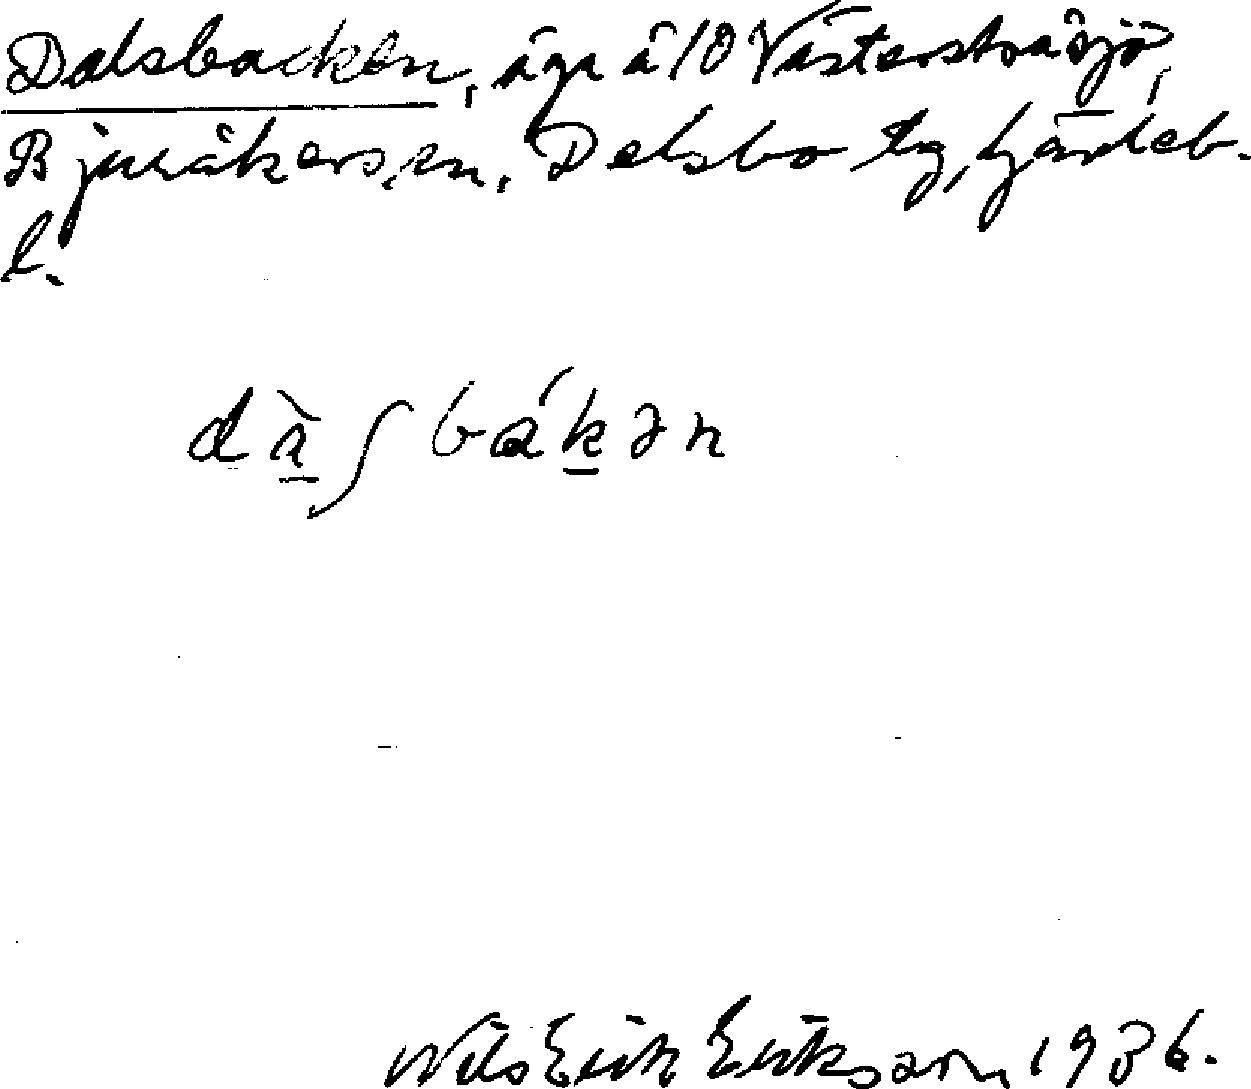 Dalsbacken, äga å 10 Västerstråsjö,
Bjuråkers sn, Delsbo tg, Gävleb.
l.
dàʃbákən
Nils Erik Eriksson 1936.